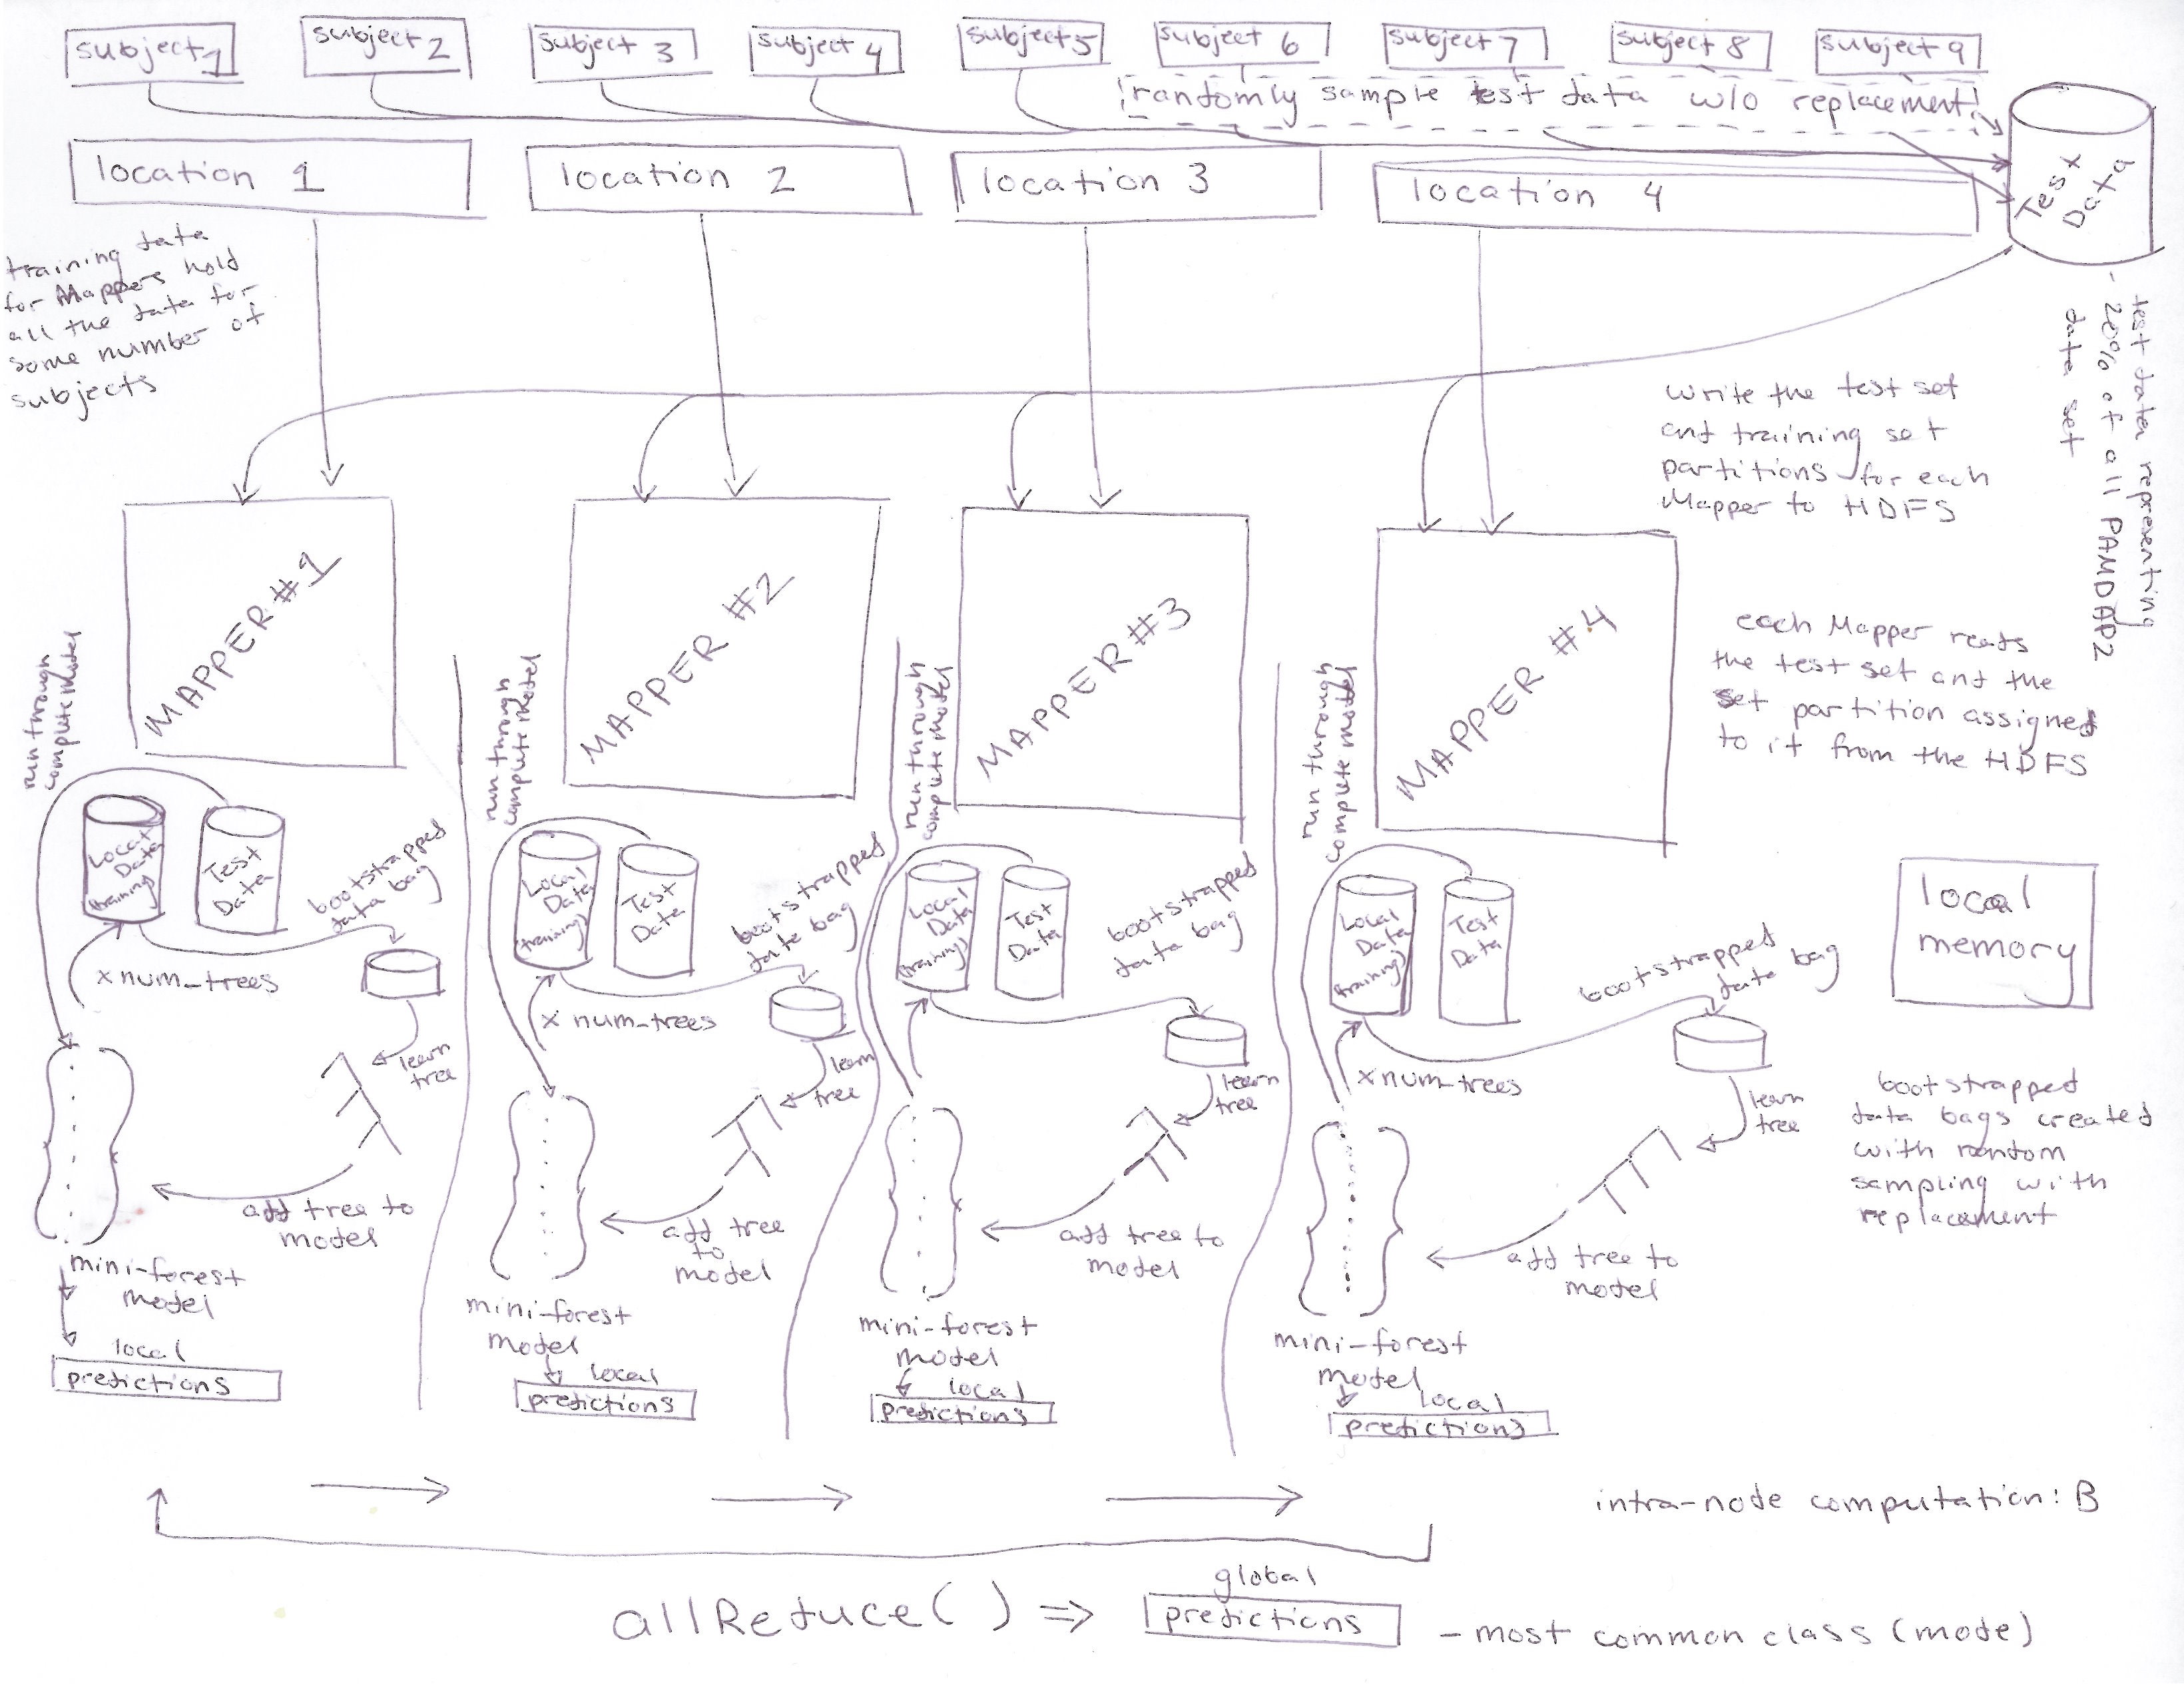 subject 1
subject 2
subject 3
subject 4
subject 5
subject 6
subject 7
subject 8
subject 9
randomly sample test data w/o replacement
location 1
location 2
location 3
location 4
Test
Data
training data
for Mappers hold
all the data for
some number of
subjects
- test data representing
20% of all PAMDAP2
data set
write the test set
and training set
partitions for each
Mapper to HDFS
MAPPER #1
MAPPER #2
MAPPER #3
MAPPER #4
each Mapper reads
the test set and the
set partition assigned
to it from the HDFS
run through
complete model
Local
Data
(training)
Test
Data
bootstrapped
data bag
x num_trees
learn
tree
add tree to
model
mini-forest
model
local
predictions
run through
complete model
Local
Data
(training)
Test
Data
bootstrapped
data bag
x num_trees
learn
tree
add tree
to
model
mini-forest
model
local
predictions
run through
complete model
Local
Data
(training)
Test
Data
bootstrapped
data bag
learn
tree
add tree to
model
mini-forest
model
local
predictions
run through
complete model
Local
Data
(training)
Test
Data
bootstrapped
data bag
x num_trees
learn
tree
add tree to
model
mini-forest
model
local
predictions
local
memory
bootstrapped
data bags created
with random
sampling with
replacement
intra-node computation: B
allReduce() ⇒
global
predictions
- most common class (mode)